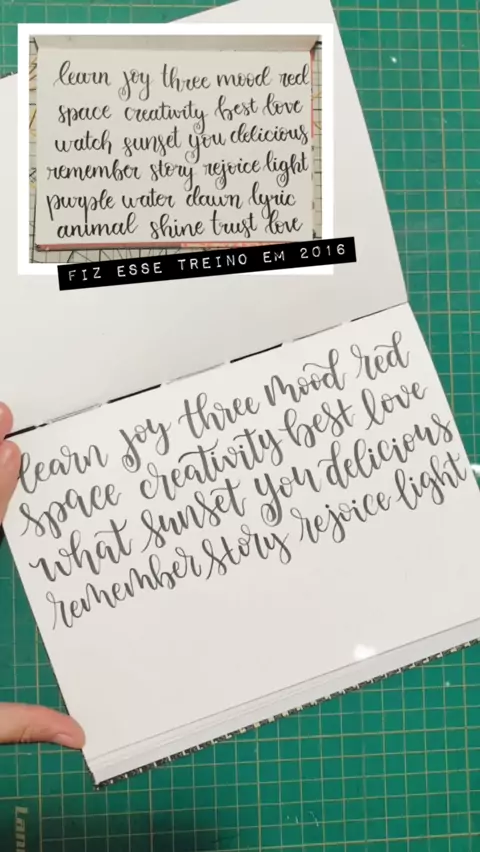 learn joy three mood red
space creativity best love
watch sunset you delicious
remember story rejoice light
purple water dawn lyric
animal shine trust love
FIZ ESSE TREINO EM 2016
learn joy three mood red
space creativity best love
what sunset you delicious
remember story rejoice light